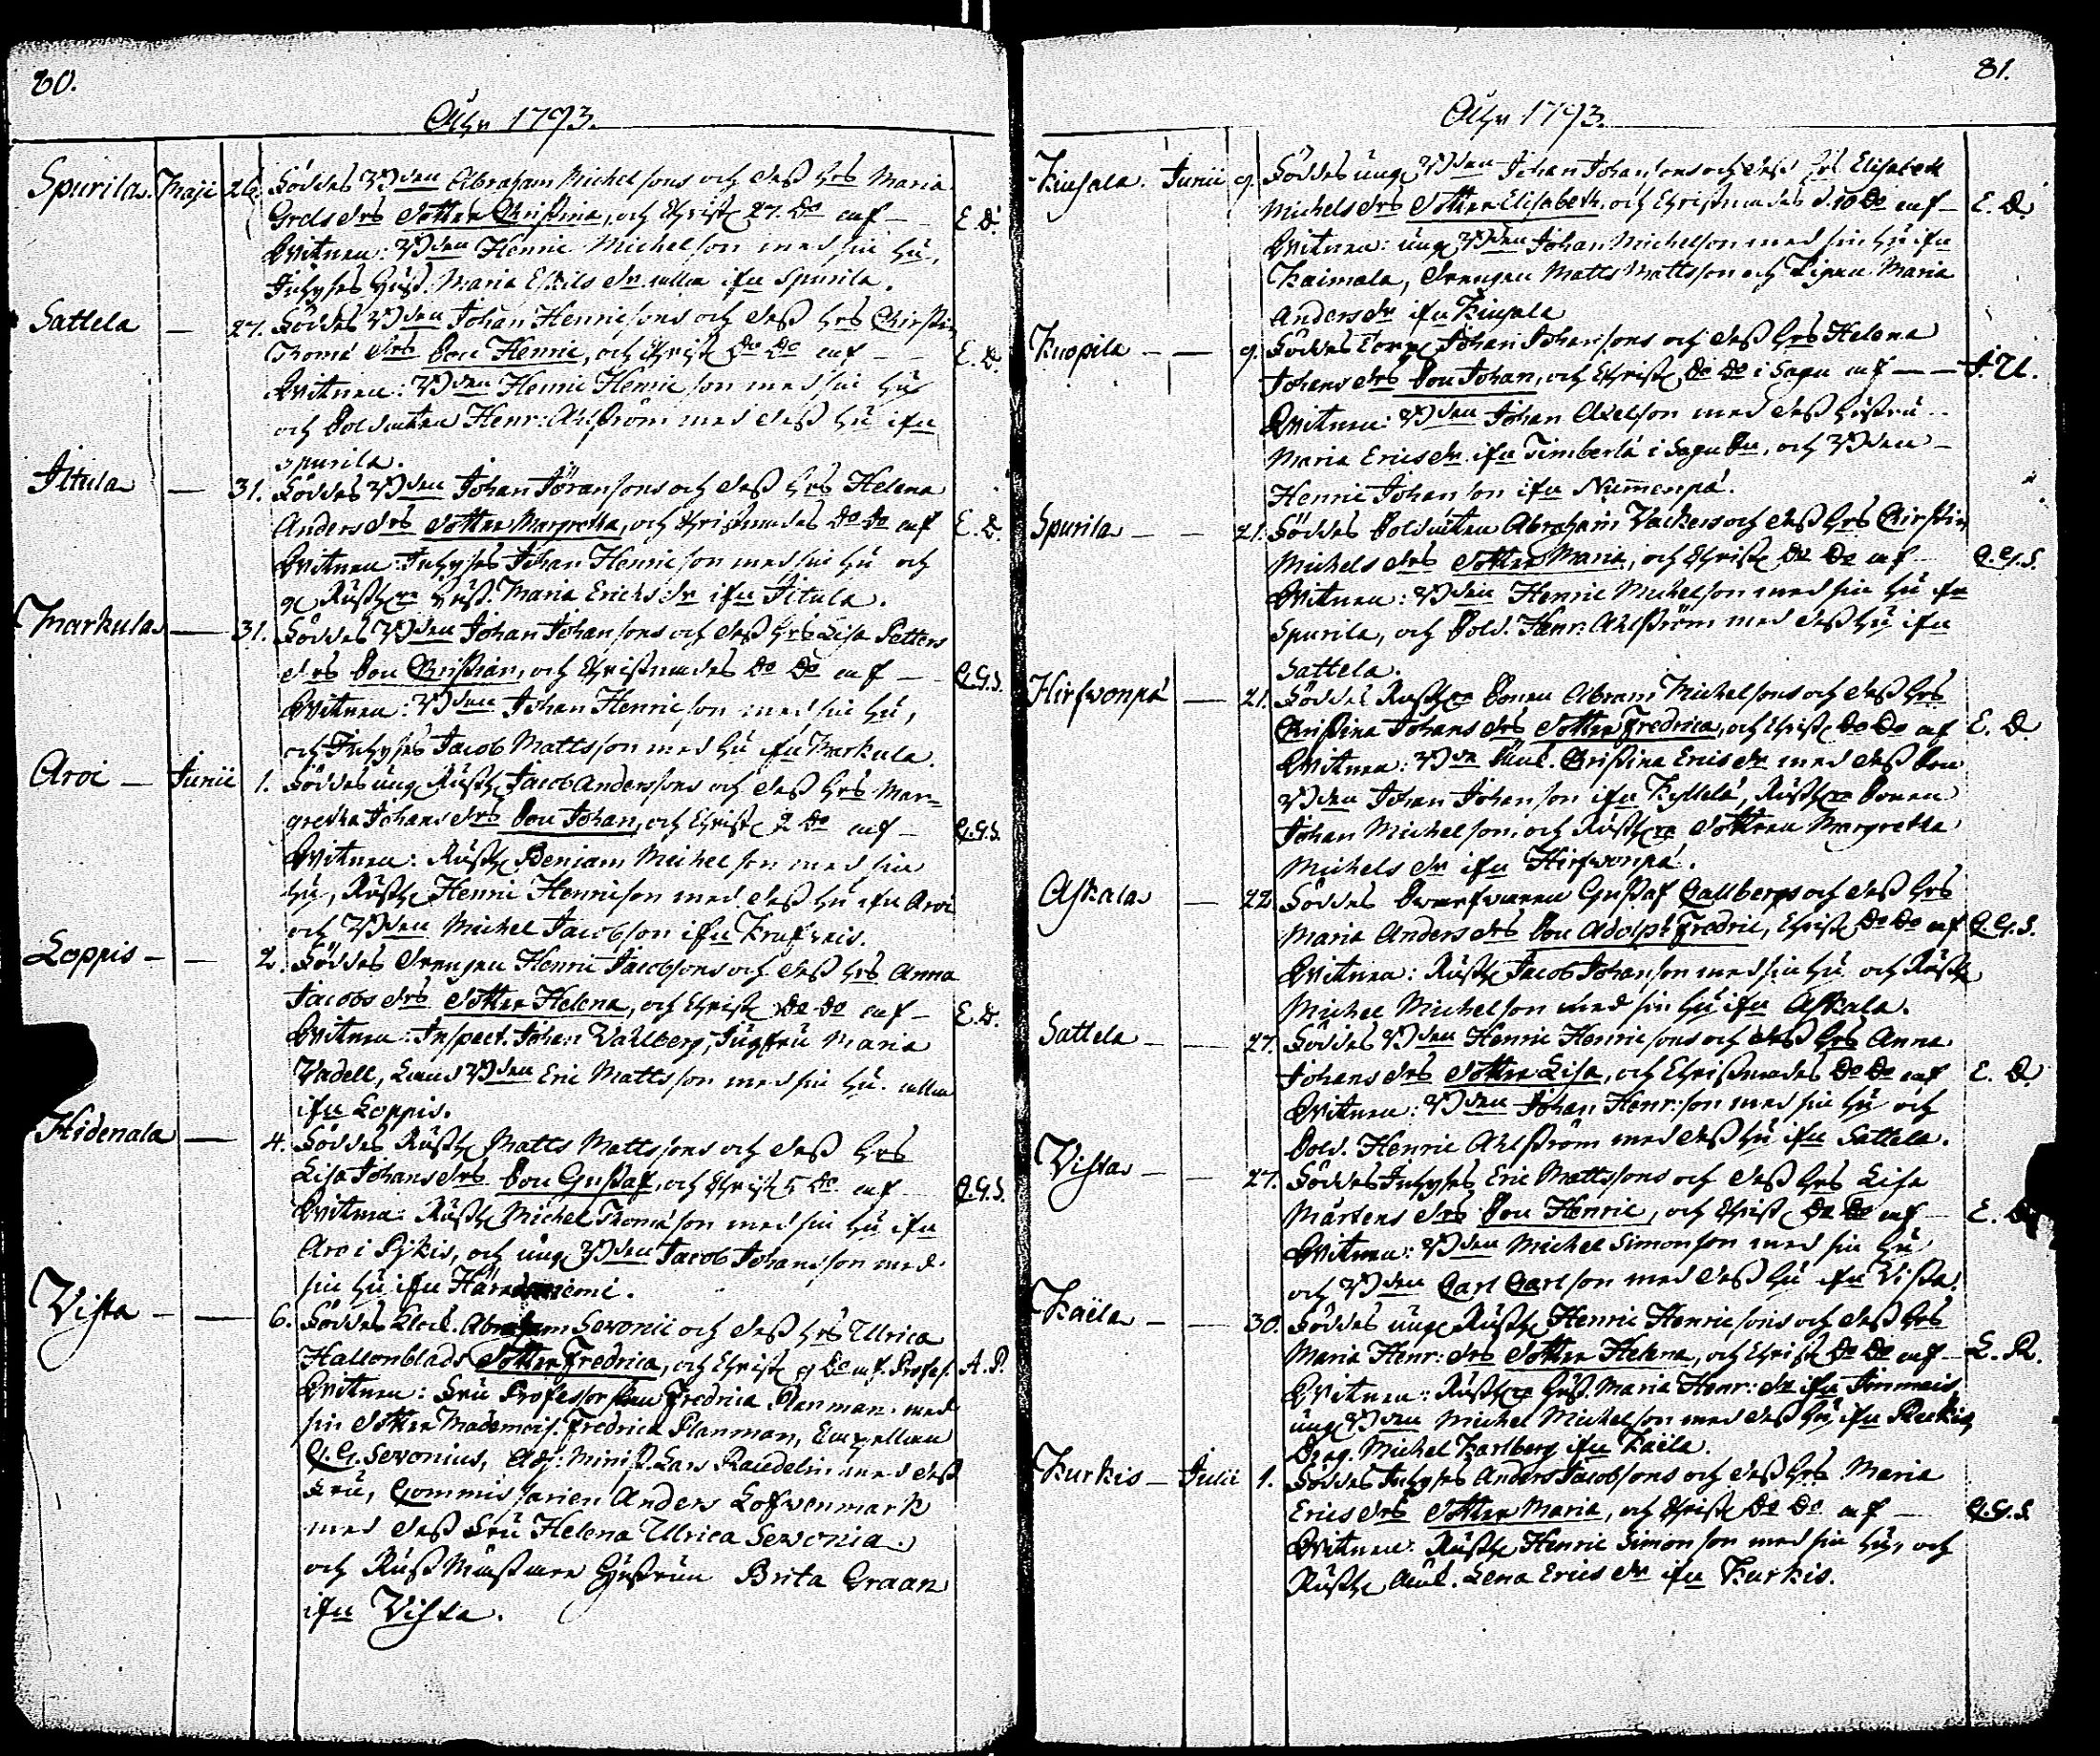 80.
Åhr 1793.
Spurila. Maji 26. Föddes Bden Abraham Michelsons och dess hrs Maria
Grels drs dotter Christina, och Christ. 27. Do af — E. D.
Witnen: Bden Henric Michelson med sin hu,
Inhyses hust. Maria Eskils dr alla ifrn Spurila.
Sattela — 27. Föddes Bden Johan Henricsons och dess hrs Christin
Thomæ drs Son Henric, och Christ. Do Do af — E. D.
Witnen: Bden Henric Henricson med sin hu
och Soldaten Henr: Ahlström med dess hu ifrn
Spurila.
Ittula — 31. Föddes Bden Johan Jöransons och dess hrs Helena
Anders drs dotter Margretha, och Christnades Do Do af E. D.
Witnen: Inhyses Johan Henricson med sin hu och
Rusth. hust. Maria Erichs dr ifrn Itula.
Markula — 31. Föddes Bden Johan Johansons och dess hrs Lisa Petters
drs Son Christian, och Christnades Do Do af — C.G.S.
Witnen: Bden Johan Henricson med sin hu,
och Inhyses Jacob Mattsson med hu ifrn Markula.
Aroi — Junii 1. Föddes ung Rusth. Jacob Anderssons och dess hrs Mar-
gretha Johans drs Son Johan, och Christ. 2 Do af — C.G.S.
Witnen: Rusth. Beniam Michelson med sin
hu, Rusth. Henric Henricson med dess hu ifrn Aroi
och Bden Michel Jacobson ifrn
Loppis — — 2. Föddes drengen Henric Jacobsons och dess hrs Anna
Jacobs drs dotter Helena, och Christ. Do Do af — E. D.
Witnen: Inspect. Johan Wahlberg, Jungfru Maria
Vadell, Land Bden Eric Mattsson med sin hu. alla
ifrn Loppis.
Hidenala — 4. Föddes Rusth. Matts Mattssons och dess hrs
Lisa Johans drs Son Gustaf, och Christ. 5 Do af — C.G.S.
Witnen: Rusth. Michel Thomæson med sin hu ifrn
Aro i Pijkis, och ung Bden Jacob Johansson med
sin hu ifrn
Vista — — 6. Föddes Klock. Abraham Sevonii och dess hrs Ulrica
Hallonblads dotter Fredrica, och Christ 9 Do af. Profess. A. P.
Witnen: Fru Professorskan Fredrica Planman med
sin dotter Mademois. Fredrica Planman, Capellan
C. G. Sevonius, Adj: Minist. Lars Randelin med dess
Fru, Commissarien Anders Lofvenmark
med dess Fru Helena Ulrica Sevonia.
och Rustmästare Hustrun Brita Graan
ifrn Vista.
81.
Åhr 1793.
Kiusala. Junii 9. Föddes ung Bden Johan Johansons och dess hrs Elisabeth
Michels drs dotter Elisabeth, och Christnades d. 10 Do af — E. D.
Witnen: ung Bden Johan Michelson med sin hu ifrn
Kaimala, drengen Matts Mattsson och Pigan Maria
Anders dr ifrn Kiusala
Kuopila — — 9. Föddes Torp. Johan Johansons och dess hrs Helena
Johans drs Son Johan, och Christ. Do Do i Sagu af — — J. U.
Witnen: Bden Johan Axelson med dess hustru
Maria Erics dr ifrn Timberlä i Sagu Sn, och Bden
Henric Johanson ifrn Nummenpä.
Spurila — — 21. Föddes Soldaten Abraham Vackers och dess hrs Christin
Michels drs dotter Maria, och Christ. Do Do af — C.G.S.
Witnen: Bden Henric Michelson med sin hu ifrn
Spurila, och Sold. Henr: Ahlström med dess hu ifrn
Sattela.
Hirfvonpä — 21. Föddes Rusth. Sonen Abram Michelsons och dess hrs
Christina Johans drs dotter Fredrica, och Christ. Do Do af E. D.
Witnen: Bde Änk. Christina Erics dr med dess Son
Bden Johan Johanson ifrn Kyllelä, Rusth. Sonen
Johan Michelson, och Rusth. dottren Margretha
Michels dr ifrn Hirfvonpä.
Askala — 22. Föddes Gustaf Callbergs och dess hrs
Maria Anders drs Son Adolph Fredric, Christ. Do Do af C.G.S.
Witnen: Rusth. Jacob Johanson med sin hu och Rusth.
Michel Michelson med sin hu ifrn Askala.
Sattela — — 27. Föddes Bden Henric Henricsons och dess hrs Anna
Johans drs dotter Lisa, och Christnades Do Do af E. D.
Witnen: Bden Johan Henr:son med sin hu och
Sold. Henric Ahlström med dess hu ifrn Sattela.
Vista — — 27. Föddes Inhyses Eric Mattssons och dess hrs Lisa
Mårtens drs Son Henric, och Christ Do Do af — E. D.
Witnen: Bden Michel Simonson med sin hu
och Bden Carl Carlson med dess hu ifrn Vista.
Kaïla — — 30. Föddes ung Rusth. Henric Henricsons och dess hrs
Maria Henr: drs dotter Helena, och Christ Do Do af — L. R.
Witnen: Rusth. hust. Maria Henr: dr ifrn
ung Bden Michel Michelson med dess hu, ifrn
Drag. Michel Karlberg ifrn Kaïla.
Kurkis — Julii 1. Föddes Inhyses Anders Jacobsons och dess hrs Maria
Erics drs dotter Maria, och Christ Do Do af — C.G.S.
Witnen: Rusth. Henric Simonson med sin hu, och
Rusth. Änk. Lena Erics dr ifrn Kurkis.